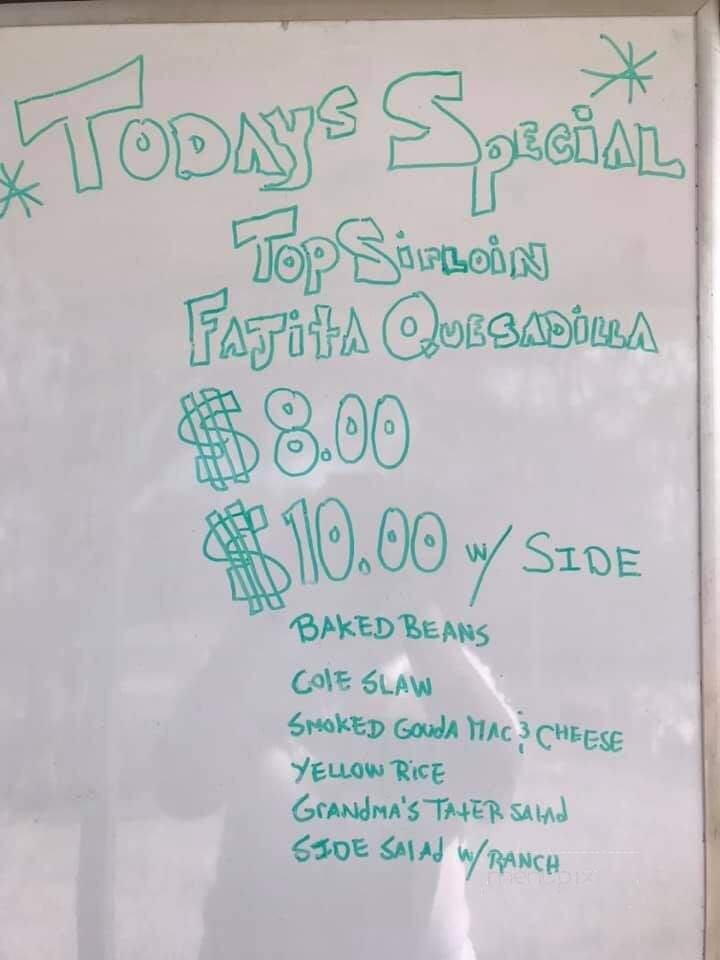 Today's Special
Top Sirloin
Fajita Quesadilla
$8.00
$10.00 w/ SIDE
BAKED BEANS
Cole SLAW
SMOKED GOUdA MAC & CHEESE
YELLOW RiCE
GRANdMA'S TATER SALAd
SIDE SALAd W/RANCH
menupix